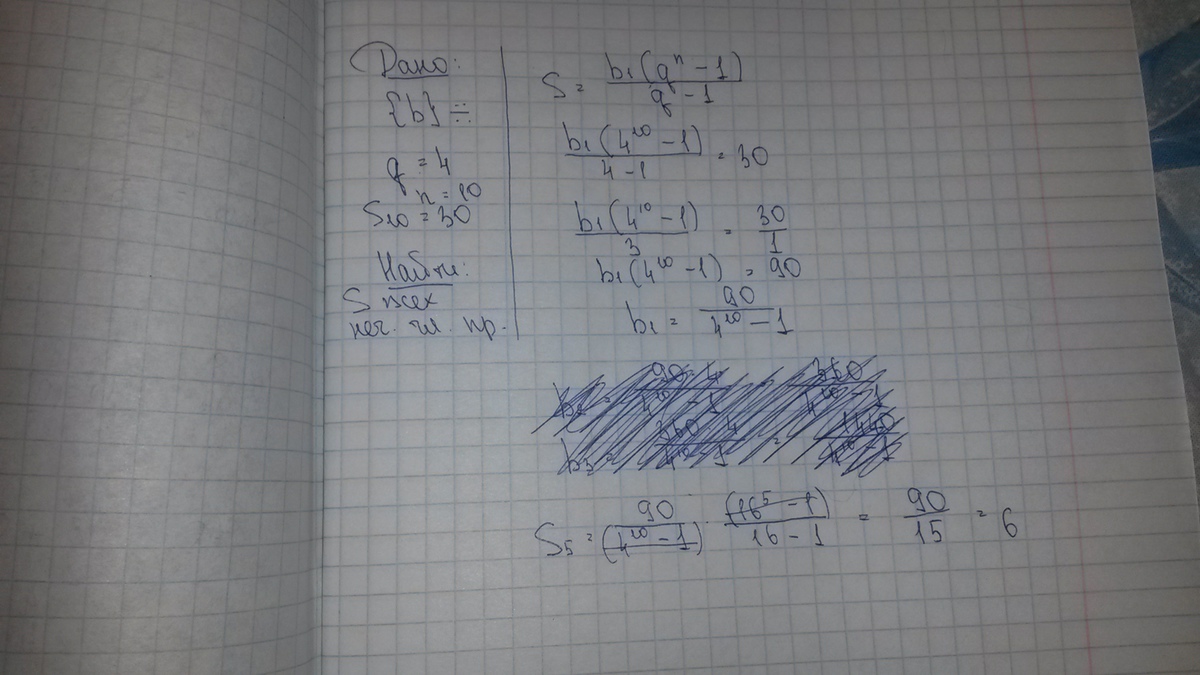 Дано:
{b} ∺
q = 4
n = 10
S₁₀ = 30
Найти:
S всех
неч. чл. пр.
S = b₁(qⁿ - 1) / q - 1
b₁(4¹⁰ - 1) / 4 - 1 = 30
b₁(4¹⁰ - 1) / 3 = 30 / 1
b₁(4¹⁰ - 1) = 90
b₁ = 90 / 4¹⁰ - 1
S₅ = 90 / (4¹⁰ - 1) · (16⁵ - 1) / 16 - 1 = 90 / 15 = 6